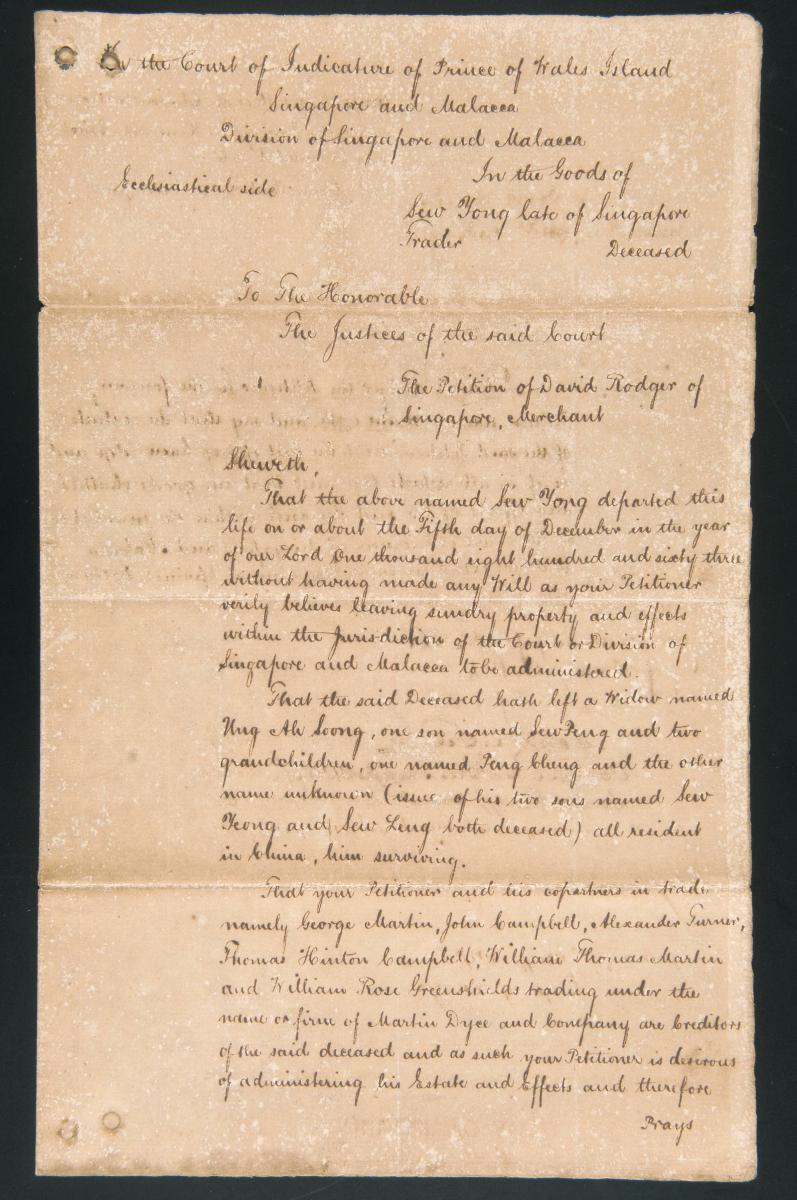 In the Court of Judicature of Prince of Wales Island
Singapore and Malacca
Division of Singapore and Malacca
In the Goods of
Ecclesiastical side
Sew Yong late of Singapore
Trader Deceased
To The Honorable
The Justices of the said Court
The Petition of David Rodger of
Singapore, Merchant
Sheweth,
That the above named Sew Yong departed this
life on or about the Fifth day of December in the year
of our Lord One thousand eight hundred and sixty three
without having made any Will as your Petitioner
verily believes leaving sundry property and effects
within the Jurisdiction of the Court or Division of
Singapore and Malacca to be administered.
That the said Deceased hath left a Widow named
Ung Ah Soong, one son named Sew Peng and two
grandchildren, one named Peng Cheng and the other
name unknown (issue of his two sons named Sew
Yeong and Sew Leng both deceased) all resident
in China, him surviving.
That your Petitioner and his copartners in trade
namely George Martin, John Campbell, Alexander Turner,
Thomas Hinton Campbell, William Thomas Martin
and William Rose Greenshields trading under the
name or firm of Martin Dyce and Company are Creditors
of the said deceased and as such your Petitioner is desirous
of administering his Estate and Effects and therefore
Prays